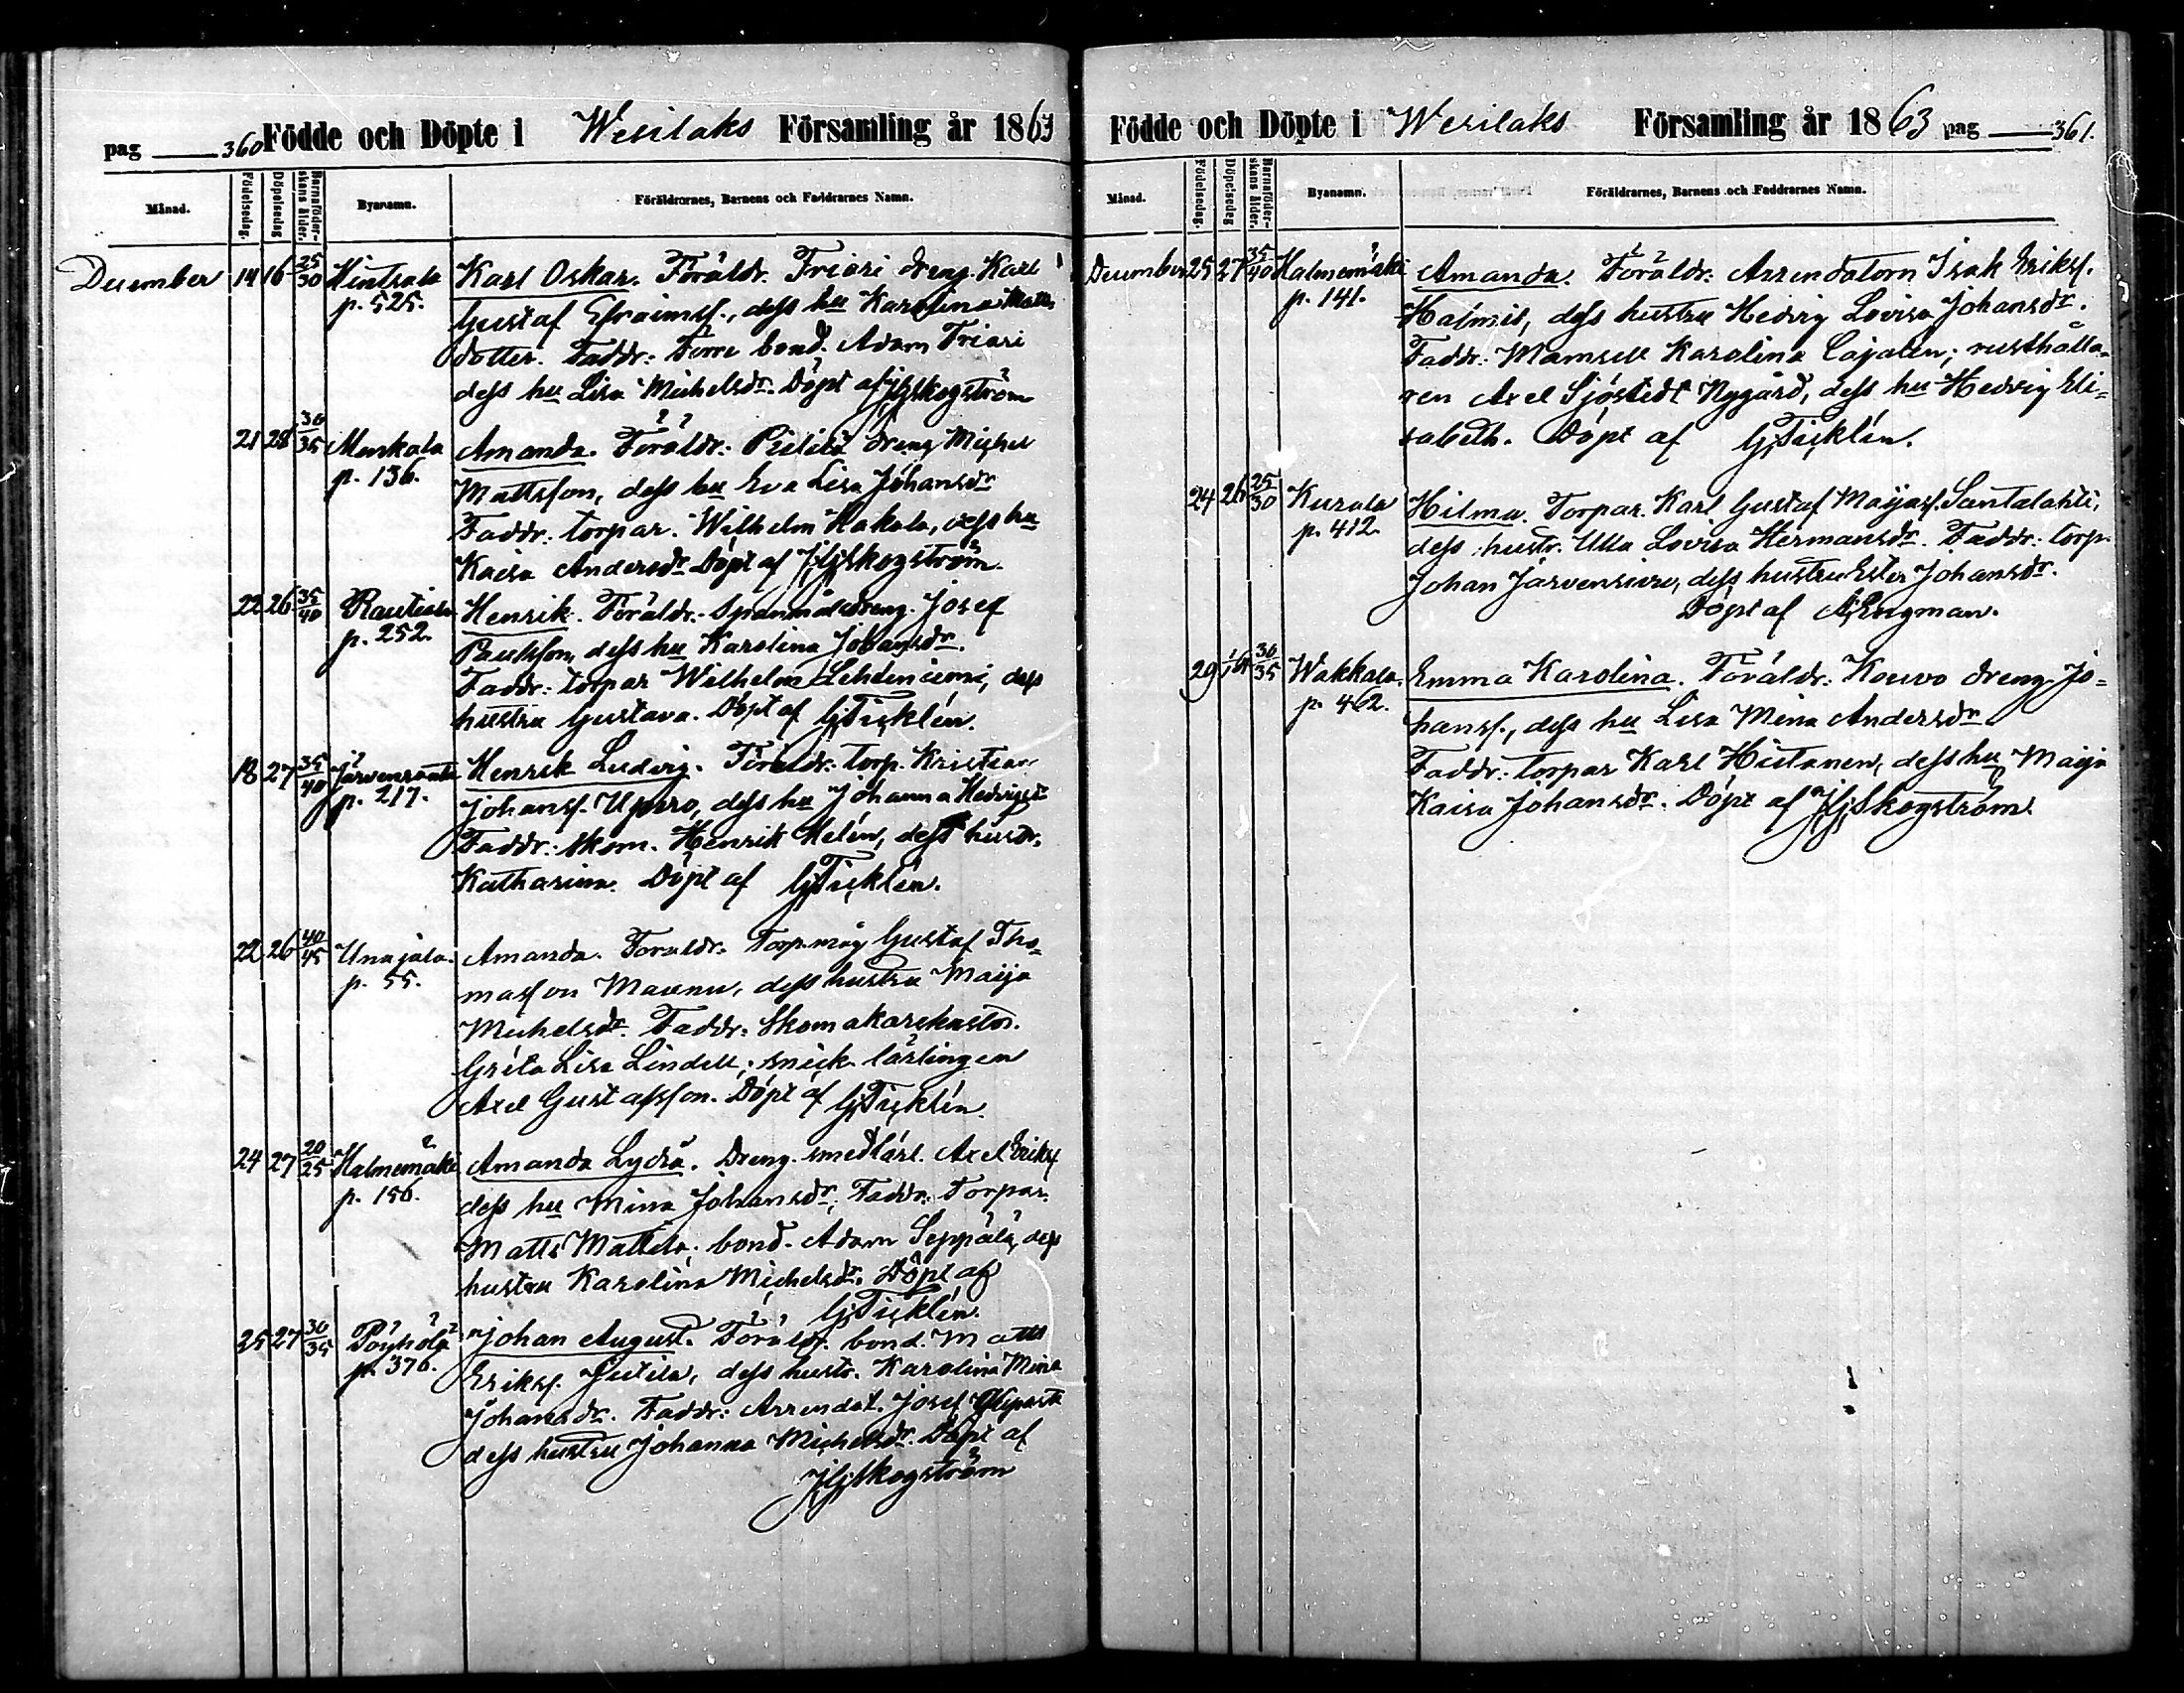 pag 360 Födde och Döpte i Wesilaks Församling år 1863
Månad. Födelsedag. Döpelsedag Barnaföderskans ålder. Byanamn. Föräldrarnes, Barnens och Faddrarnes Namn.
December 14 16 25/30 Hintsala Karl Oskar. Föräldr. Friari dreng. Karl
p. 525. Gustaf Efraimss., dess hu Karolina Matts
dotter. Faddr: Förre bond. Adam Friari
dess hu Lisa Michelsdr. Döpt af JGSkogström
21 28 30/35 Menkala Amanda. Föräldr: dreng Michel
p. 136. Mattsson, dess hu Eva Lisa Johansdr
Faddr: torpar. Wilhelm Hakala, dess hu
Kaisa Andersdr Döpt af JGSkogström.
22 26 35/40 Rautiala Henrik. Föräldr. Spanmålsdreng. Josef
p. 252. Paulsson, dess hu Karolina Johansdr.
Faddr: torpar Wilhelm Lehdeniemi, dess
hustru Gustava. Döpt af GTicklén.
18 27 35/40 Järvenranta Henrik Ludvig. Föräldr: torp. Kristian
p. 217. Johanss. Uporo, dess hu Johanna Hedvigsdr
Faddr: skom. Henrik Helén, dess hustr.
Katharina. Döpt af GTicklén.
22 26 40/45 Unajala. Amanda. Föräldr: Torp.måg Gustaf Tho=
p. 55. masson Maunu, dess hustru Maija
Michelsdr. Faddr: Skomakarehustr.
Greta Lisa Lindell; snick. lärlingen
Axel Gustafsson. Döpt af GTicklén.
24 27 20/25 Halmemäki Amanda Lydia. Dreng. smedlärl. Axel Erikss
p. 156. dess hu Mina Johansdr; Faddr: Torpar.
Matts Mattila; bond. Adam Seppälä, dess
hustru Karolina Michelsdr. Döpt af
GTicklén.
25 27 30/35 Pöyhölä Johan August. Föräldr. bond. Matts
p. 376. Erikss. Jutila, dess hustr. Karolina Mina
Johansdr. Faddr: Arrendat. Josef
dess hustru Johanna Michelsdr. Döpt af
JGSkogström
Födde och Döpte i Wesilaks Församling år 1863 pag 361.
Månad. Födelsedag. Döpelsedag Barnaföderskans ålder. Byanamn. Föräldrarnes, Barnens och Faddrarnes Namn.
December 25 27 35/40 Halmemäki Amanda. Föräldr: Arrendatorn Isak Erikss.
p. 141. Halmis, dess hustru Hedvig Lovisa Johansdr.
Faddr: Mamsell Karolina Cajalen; rusthålla=
ren Axel Sjöstedt Nygård, dess hu Hedvig Eli=
sabeth. Döpt af GTicklén.
24 26 25/30 Kurala Hilma. Torpar. Karl Gustaf Maijass. Santalahti,
p. 412. dess hustr. Ulla Lovisa Hermansdr. Faddr: torp.
Johan Järvensivu, dess hustru Ester Johansdr.
Döpt af AEngman.
29 1/1 64 30/35 Wakkala. Emma Karolina. Föräldr: Kouvo dreng. Jo=
p. 462. hanss., dess hu Lisa Mina Andersdr
Faddr: torpar Karl Hietanen, dess hu Maija
Kaisa Johansdr. Döpt af JGSkogström.